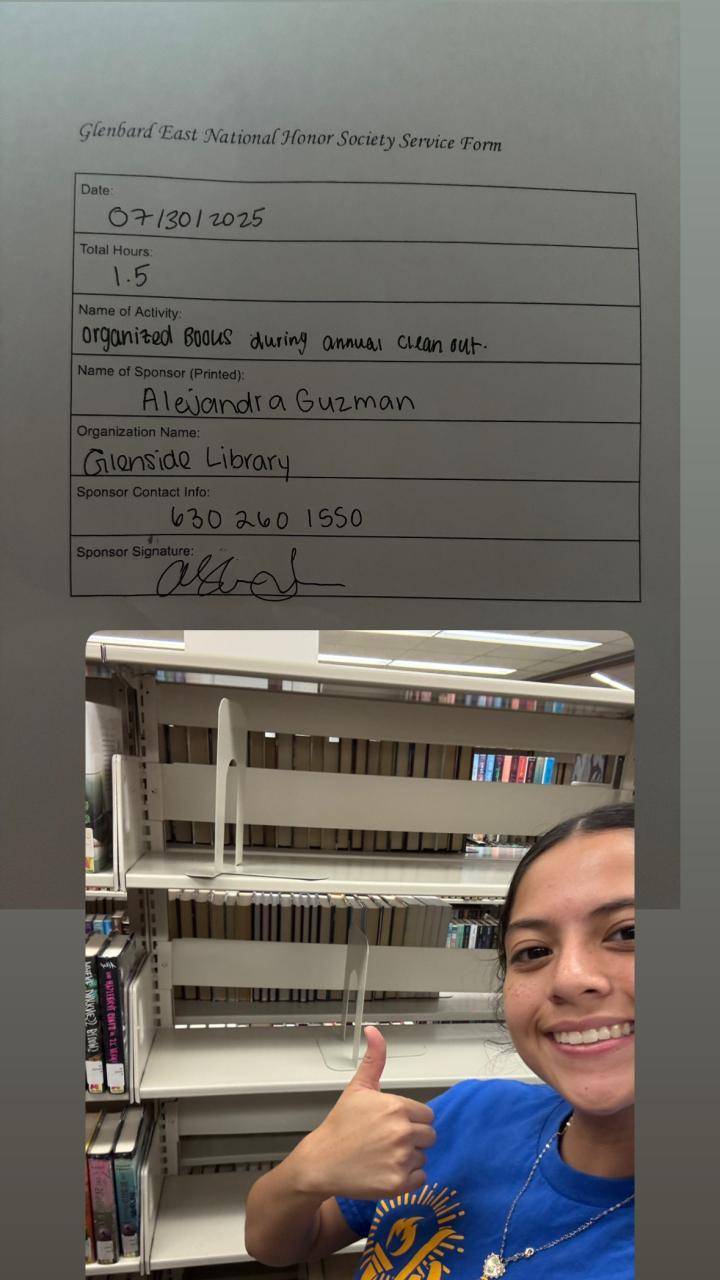 Glenbard East National Honor Society Service Form
Date:
07/30/2025
Total Hours:
1.5
Name of Activity:
organized Books during annual clean out.
Name of Sponsor (Printed):
Alejandra Guzman
Organization Name:
Glenside Library
Sponsor Contact Info:
630 260 1550
Sponsor Signature: